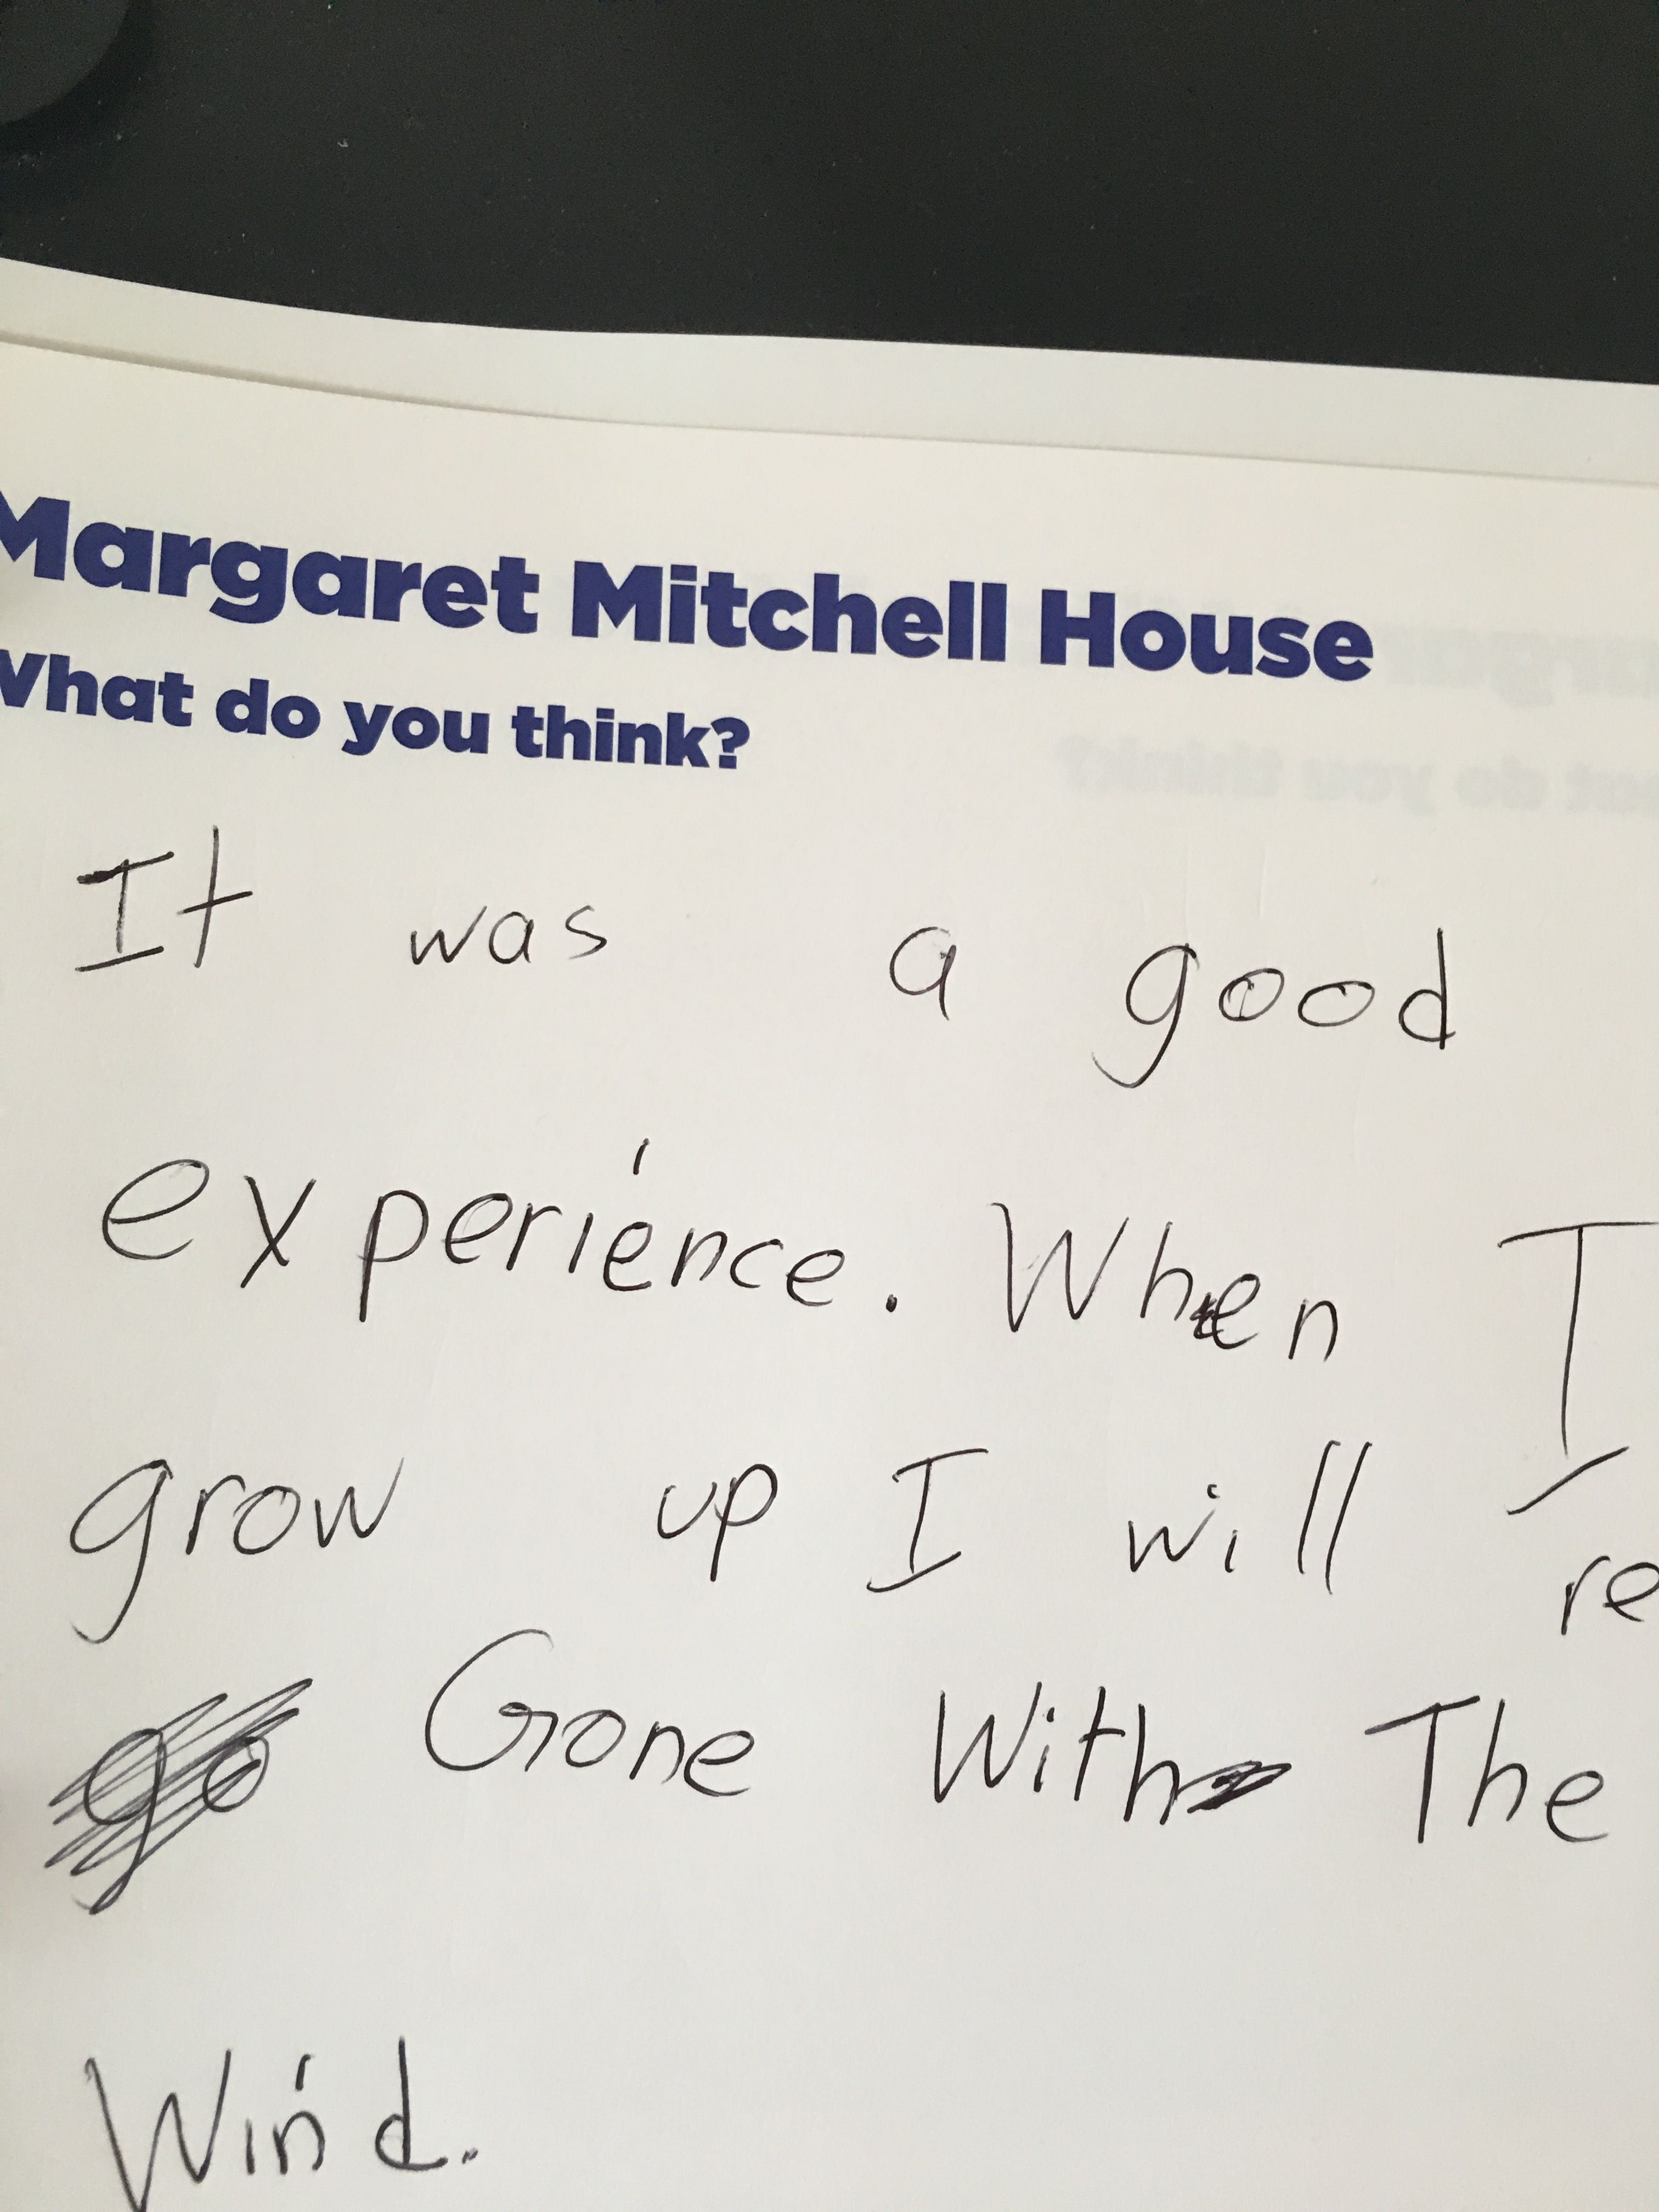 Margaret Mitchell House
What do you think?
It was a good
experience. When I
grow up I will re
go Gone With The
Wind.